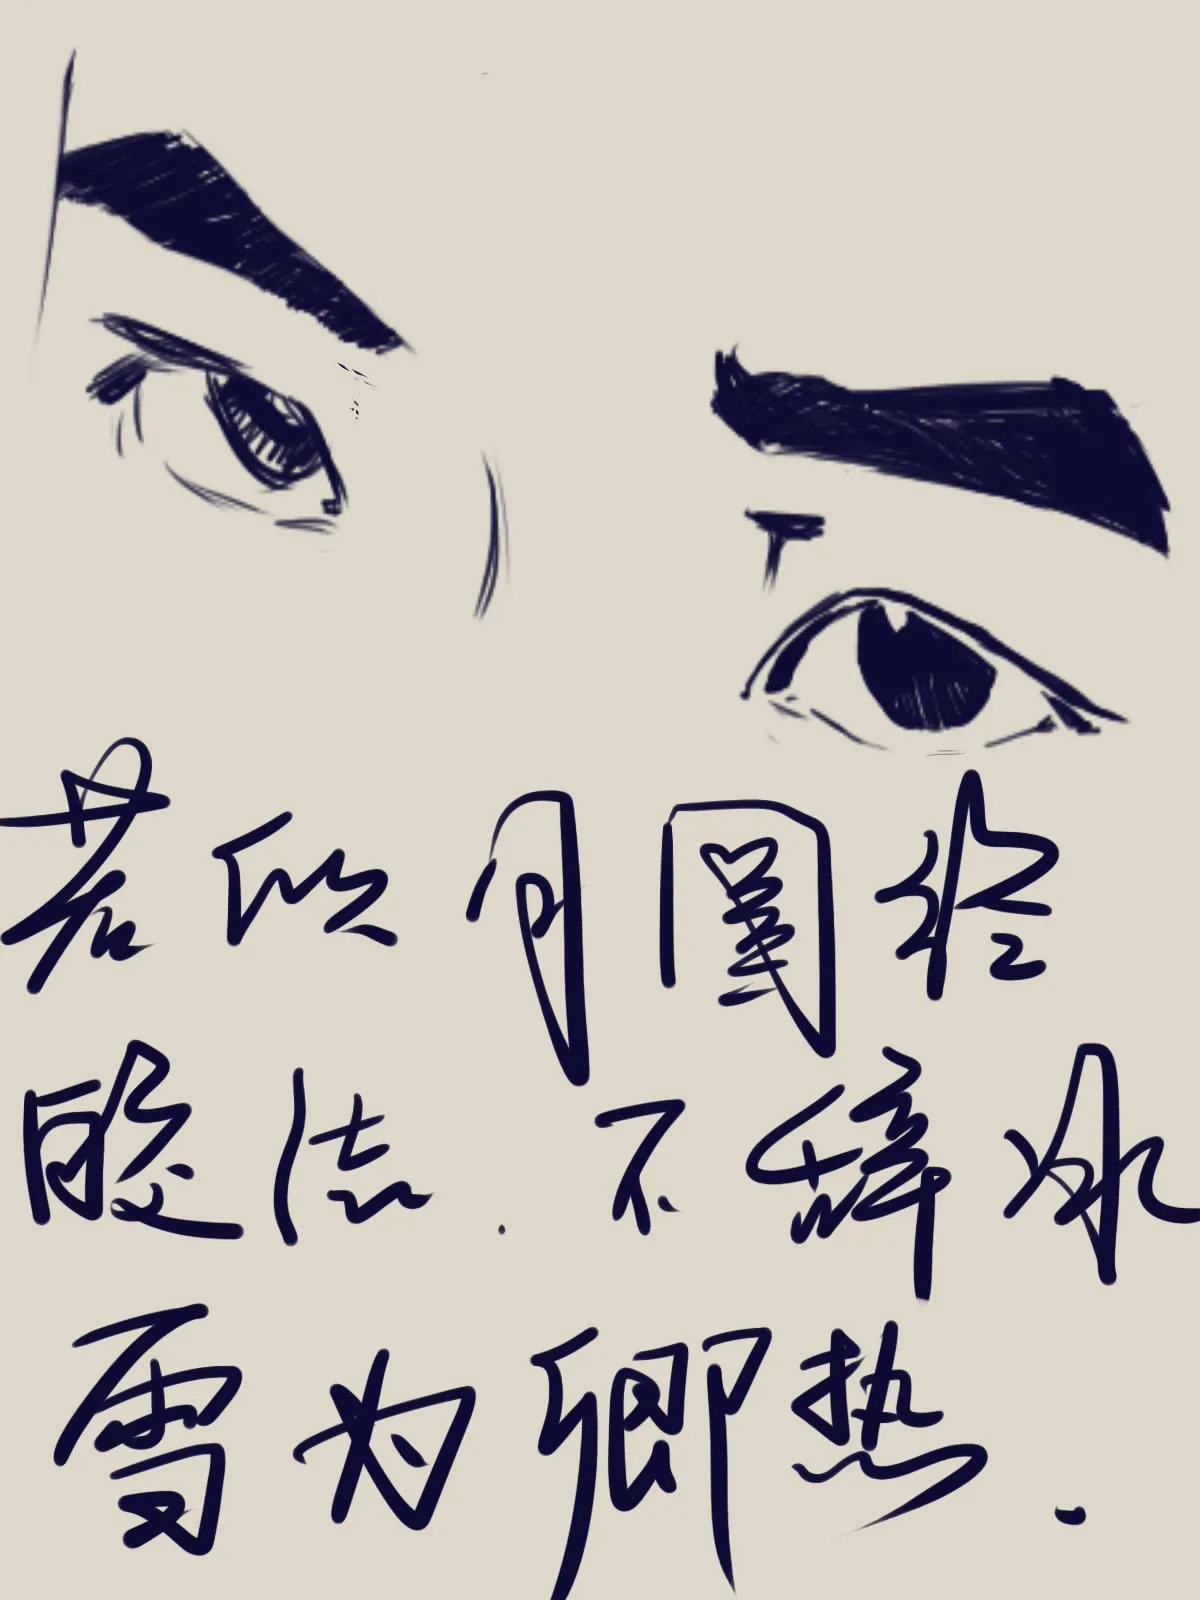 若似月圆终
皎洁.不辞冰
雪为卿热.